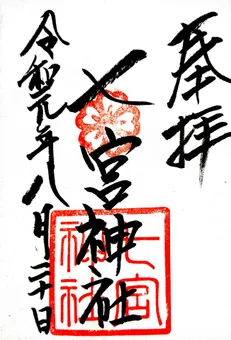 奉拝
七宮神社
七宮
神社
令和元年八月二十日